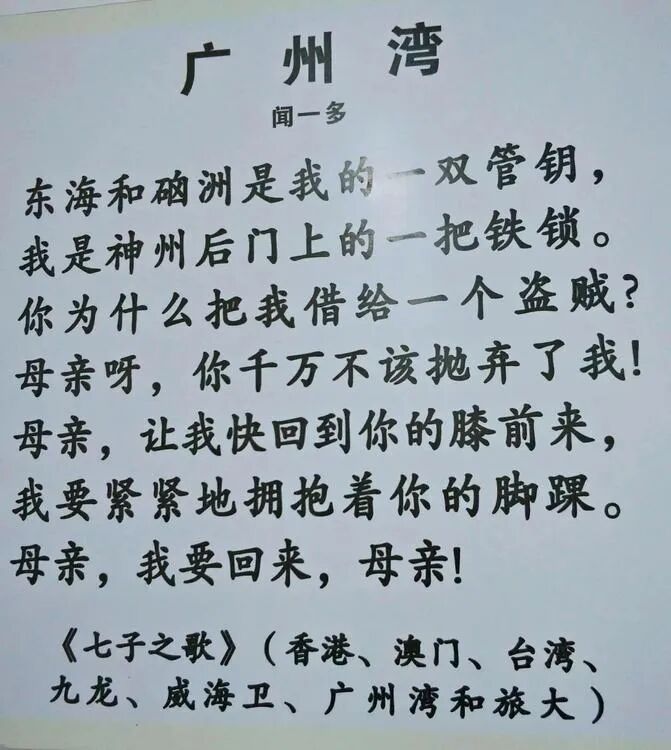 广州湾
闻一多
东海和硇洲是我的一双管钥，
我是神州后门上的一把铁锁。
你为什么把我借给一个盗贼？
母亲呀，你千万不该抛弃了我！
母亲，让我快回到你的膝前来，
我要紧紧地拥抱着你的脚踝。
母亲，我要回来，母亲！
《七子之歌》（香港、澳门、台湾、
九龙、威海卫、广州湾和旅大）